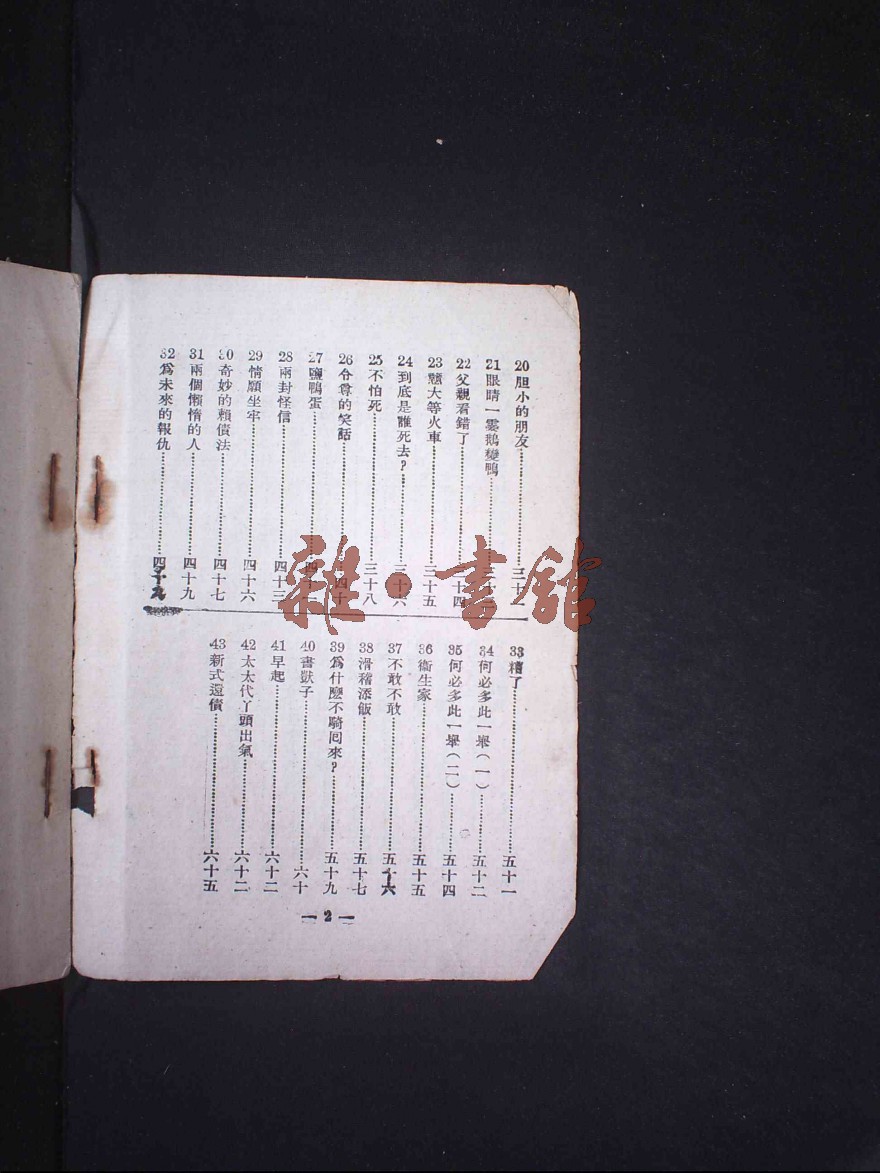 20胆小的朋友……三十一
21眼睛一霎鵝變鴨……三十
22父親看錯了……三十四
23戇大等火車……三十五
24到底是誰死去？……三十六
25不怕死……三十八
26令尊的笑話……四十
27鹽鴨蛋……四十一
28兩封怪信……四十三
29情願坐牢……四十六
30奇妙的賴債法……四十七
31兩個懶惰的人……四十九
32爲未來的報仇……四十九
33糟了……五十一
34何必多此一舉（一）……五十二
35何必多此一舉（二）……五十四
36衞生家……五十五
37不敢不敢……五十六
38滑稽添飯……五十七
39爲什麽不騎囘來？……五十九
40書獃子……六十
41早起……六十二
42太太代丫頭出氣……六十二
43新式還債……六十五
— 2 —
雜·書館